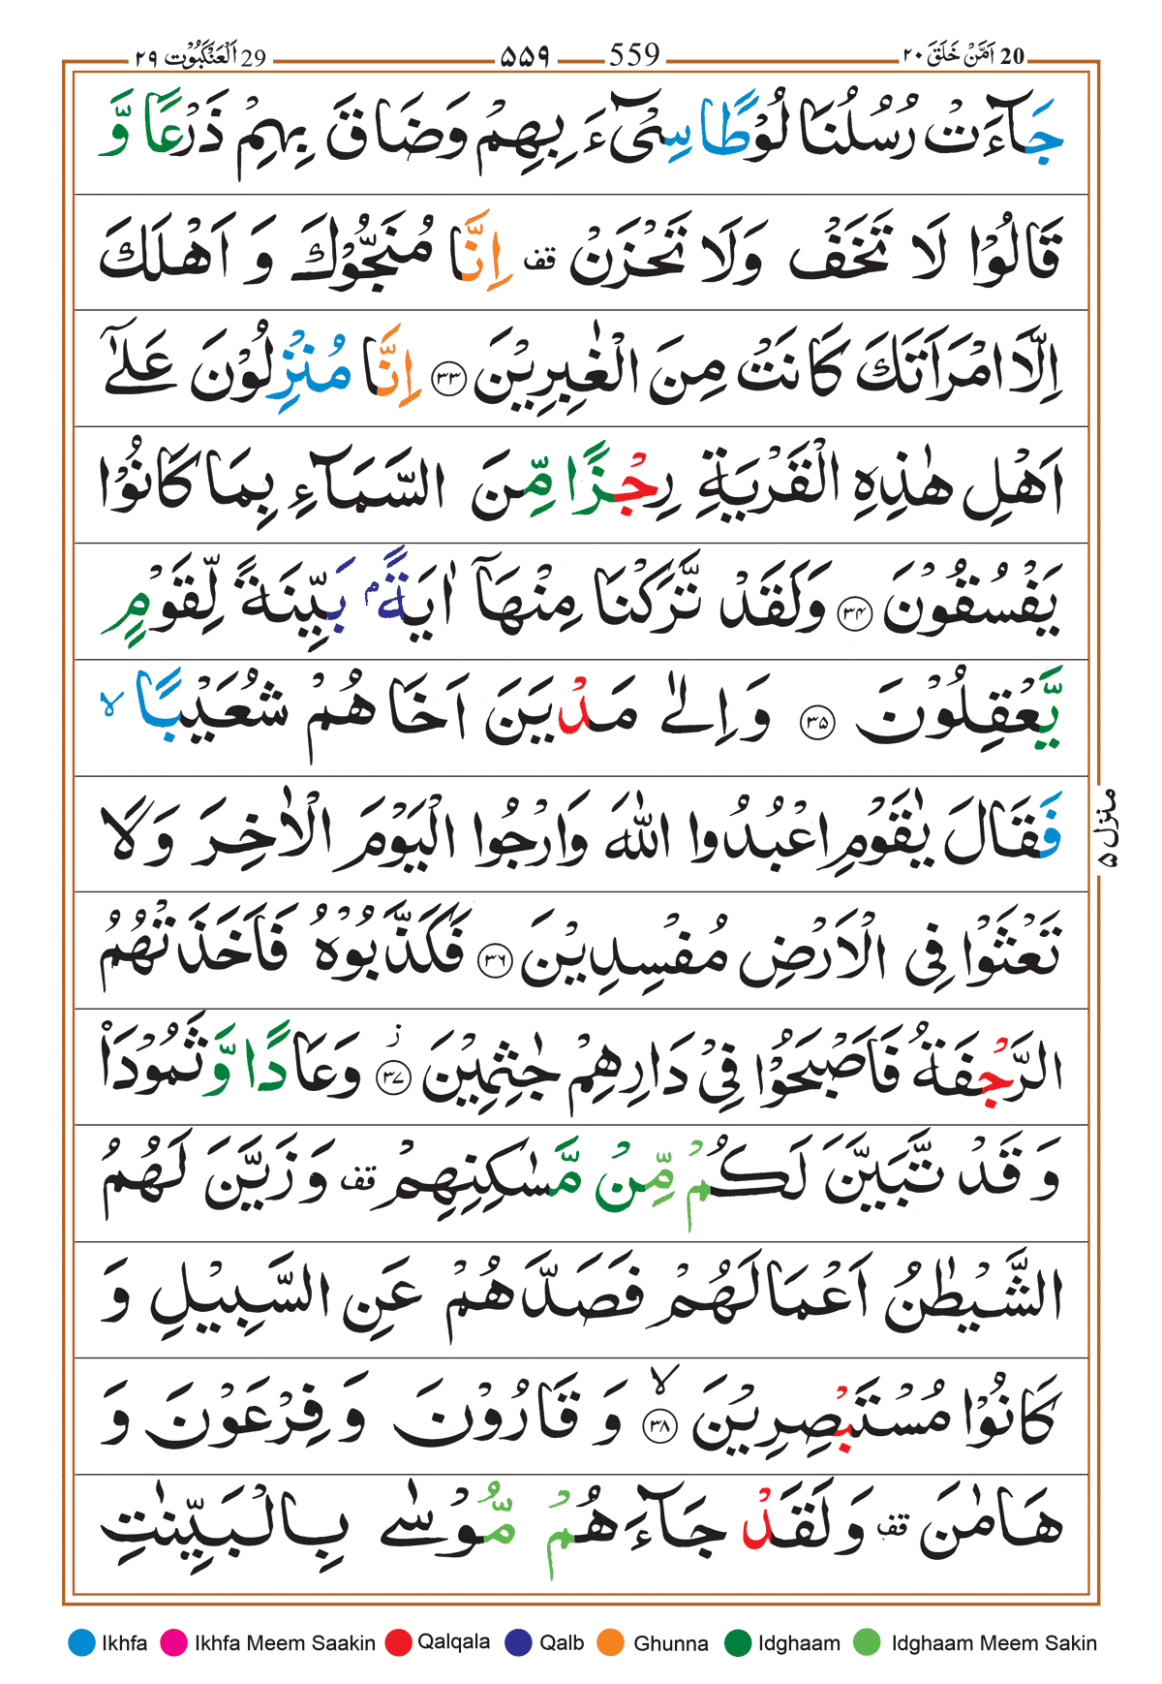 20 اَمَّنْ خَلَقَ ٢٠
559 ۵۵۹
29 اَلْعَنْكَبُوْت ٢٩
جَآءَتْ رُسُلُنَا لُوْطًا سِیْٓءَ بِهِمْ وَضَاقَ بِهِمْ ذَرْعًا وَّ
قَالُوْا لَا تَخَفْ وَلَا تَحْزَنْ قف اِنَّا مُنَجُّوْكَ وَ اَهْلَكَ
اِلَّا امْرَاَتَكَ كَانَتْ مِنَ الْغٰبِرِيْنَ ﴿۳۳﴾ اِنَّا مُنْزِلُوْنَ عَلٰٓى
اَهْلِ هٰذِهِ الْقَرْيَةِ رِجْزًا مِّنَ السَّمَآءِ بِمَا كَانُوْا
يَفْسُقُوْنَ ﴿۳۴﴾ وَلَقَدْ تَّرَكْنَا مِنْهَآ اٰيَةًۢ بَيِّنَةً لِّقَوْمٍ
يَّعْقِلُوْنَ ﴿۳۵﴾ وَاِلٰى مَدْيَنَ اَخَاهُمْ شُعَيْبًا ۙ
فَقَالَ يٰقَوْمِ اعْبُدُوا اللّٰهَ وَارْجُوا الْيَوْمَ الْاٰخِرَ وَلَا
تَعْثَوْا فِى الْاَرْضِ مُفْسِدِيْنَ ﴿۳۶﴾ فَكَذَّبُوْهُ فَاَخَذَتْهُمُ
الرَّجْفَةُ فَاَصْبَحُوْا فِىْ دَارِهِمْ جٰثِمِيْنَ ﴿۳۷﴾ ز وَعَادًا وَّثَمُوْدَا۟
وَ قَدْ تَّبَيَّنَ لَكُمْ مِّنْ مَّسٰكِنِهِمْ قف وَزَيَّنَ لَهُمُ
الشَّيْطٰنُ اَعْمَالَهُمْ فَصَدَّهُمْ عَنِ السَّبِيْلِ وَ
كَانُوْا مُسْتَبْصِرِيْنَ ﴿۳۸﴾ ۙ وَ قَارُوْنَ وَفِرْعَوْنَ وَ
هَامٰنَ قف وَلَقَدْ جَآءَهُمْ مُّوْسٰى بِالْبَيِّنٰتِ
منزل ۵
Ikhfa Ikhfa Meem Saakin Qalqala Qalb Ghunna Idghaam Idghaam Meem Sakin